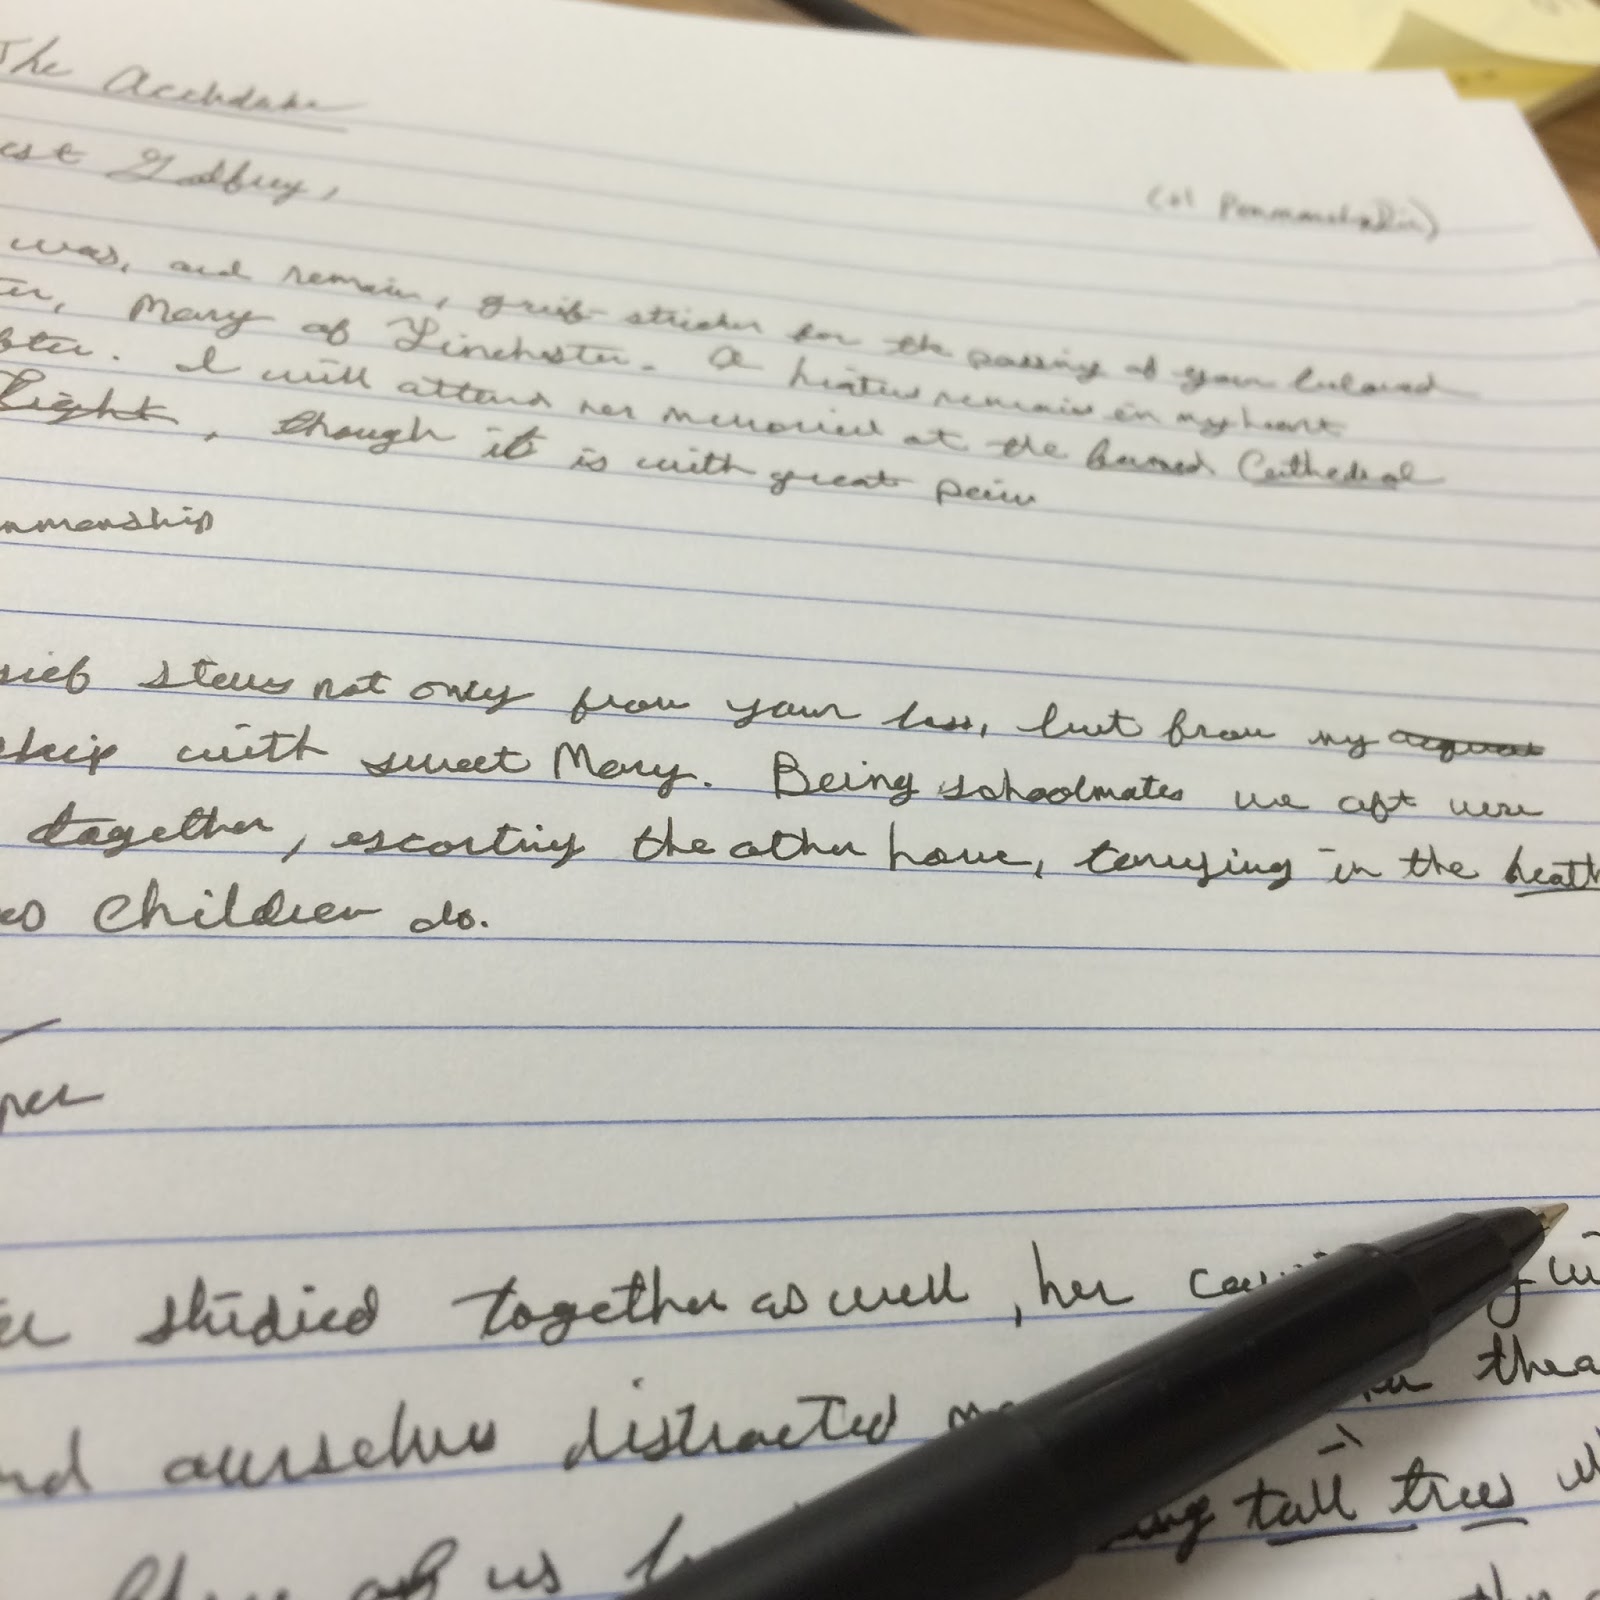 The
Godfrey,
was, and remain, grief-stricken for the passing of your beloved
Mary of Linchester. A hiatus remains in my heart
I will attend her memorial at the burned Cathedral
Light, though it is with great pain
nmanship
rief stems not only from your loss, but from my
ship with sweet Mary. Being schoolmates we oft were
together, escorting the other home, tarrying in the heath
as children do.
per
studied together as well, her
nd ourselves distracted
tall trees
of us